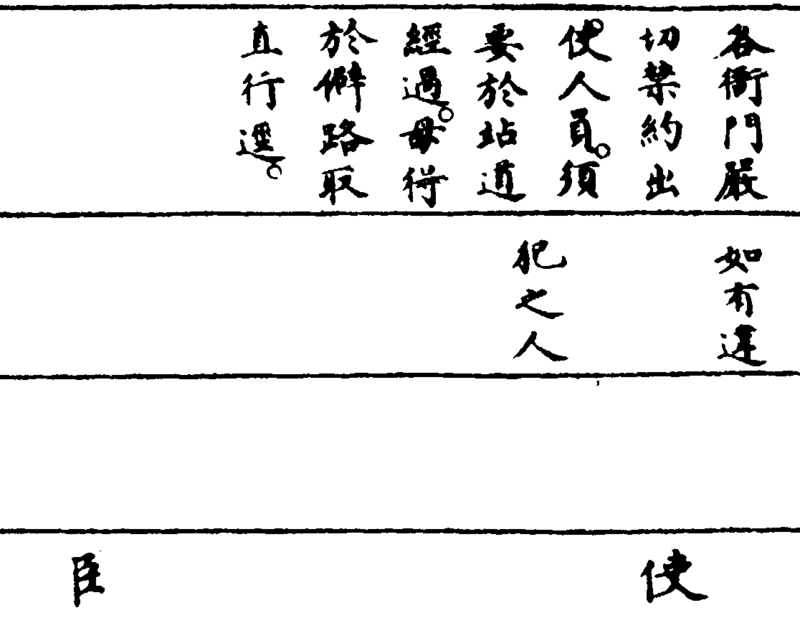 各衙門嚴
切禁約出
使人員須
要於站道
經過毋得
於僻路取
直行邐
如有違
犯之人
使
臣